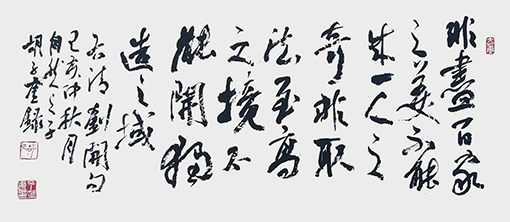 非盡百家
之美不能
成一人之
奇非取
法至高
之境不
能開獨
造之域
清劉開句
己亥仲秋月
錄